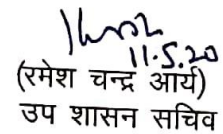 11.5.20
(रमेश चन्द्र आर्य)
उप शासन सचिव